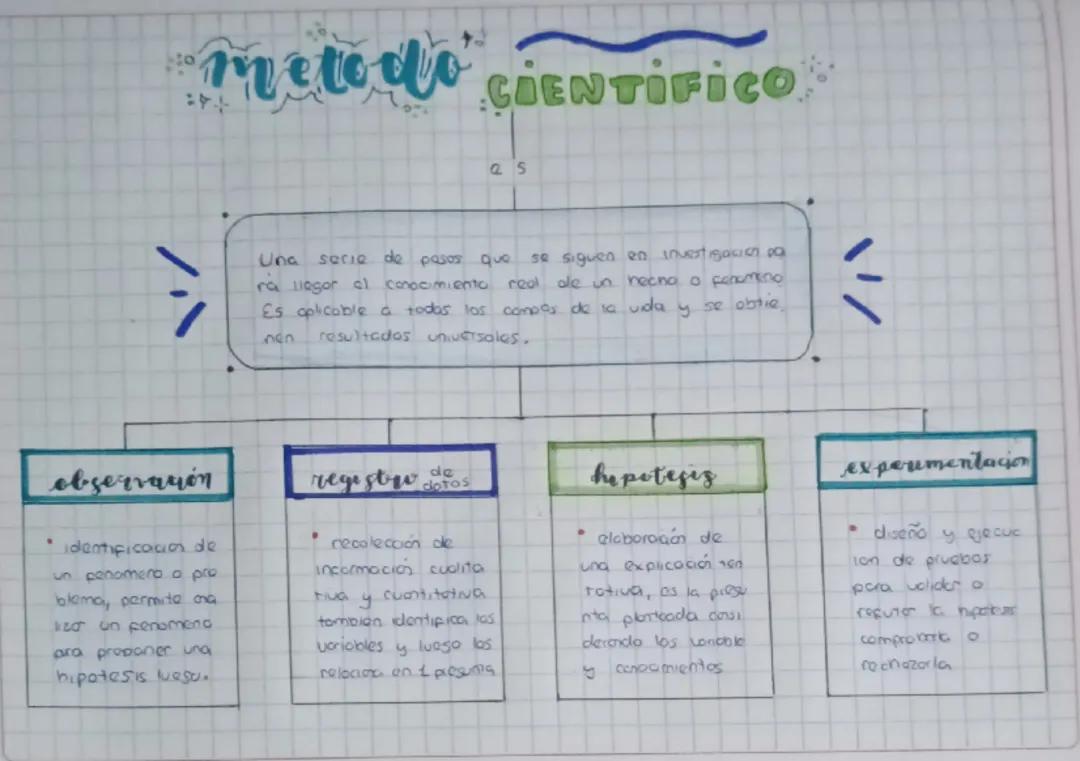 metodo CIENTIFICO
es
Una serie de pasos que se siguen en investigacion pa
ra llegar al conocimiento real de un hecho o fenomeno
Es aplicable a todos los campos de la vida y se obtie
nen resultados universales.
observación
identificacion de
un fenomeno o pro
blema, permite ana
lizar un fenomeno
para proponer una
hipotesis luego.
registro de datos
recolección de
informacion cualita
tiva y cuantitativa
también identifica las
variables y luego las
relaciona en 1 pregunta
hipotesis
elaboración de
una explicación ten
tativa, es la
planteada consi
derando las variable
y conocimientos
experimentacion
diseño y ejecuc
ion de pruebas
para validar o
refutar la hipotesis
comprobarla o
rechazarla